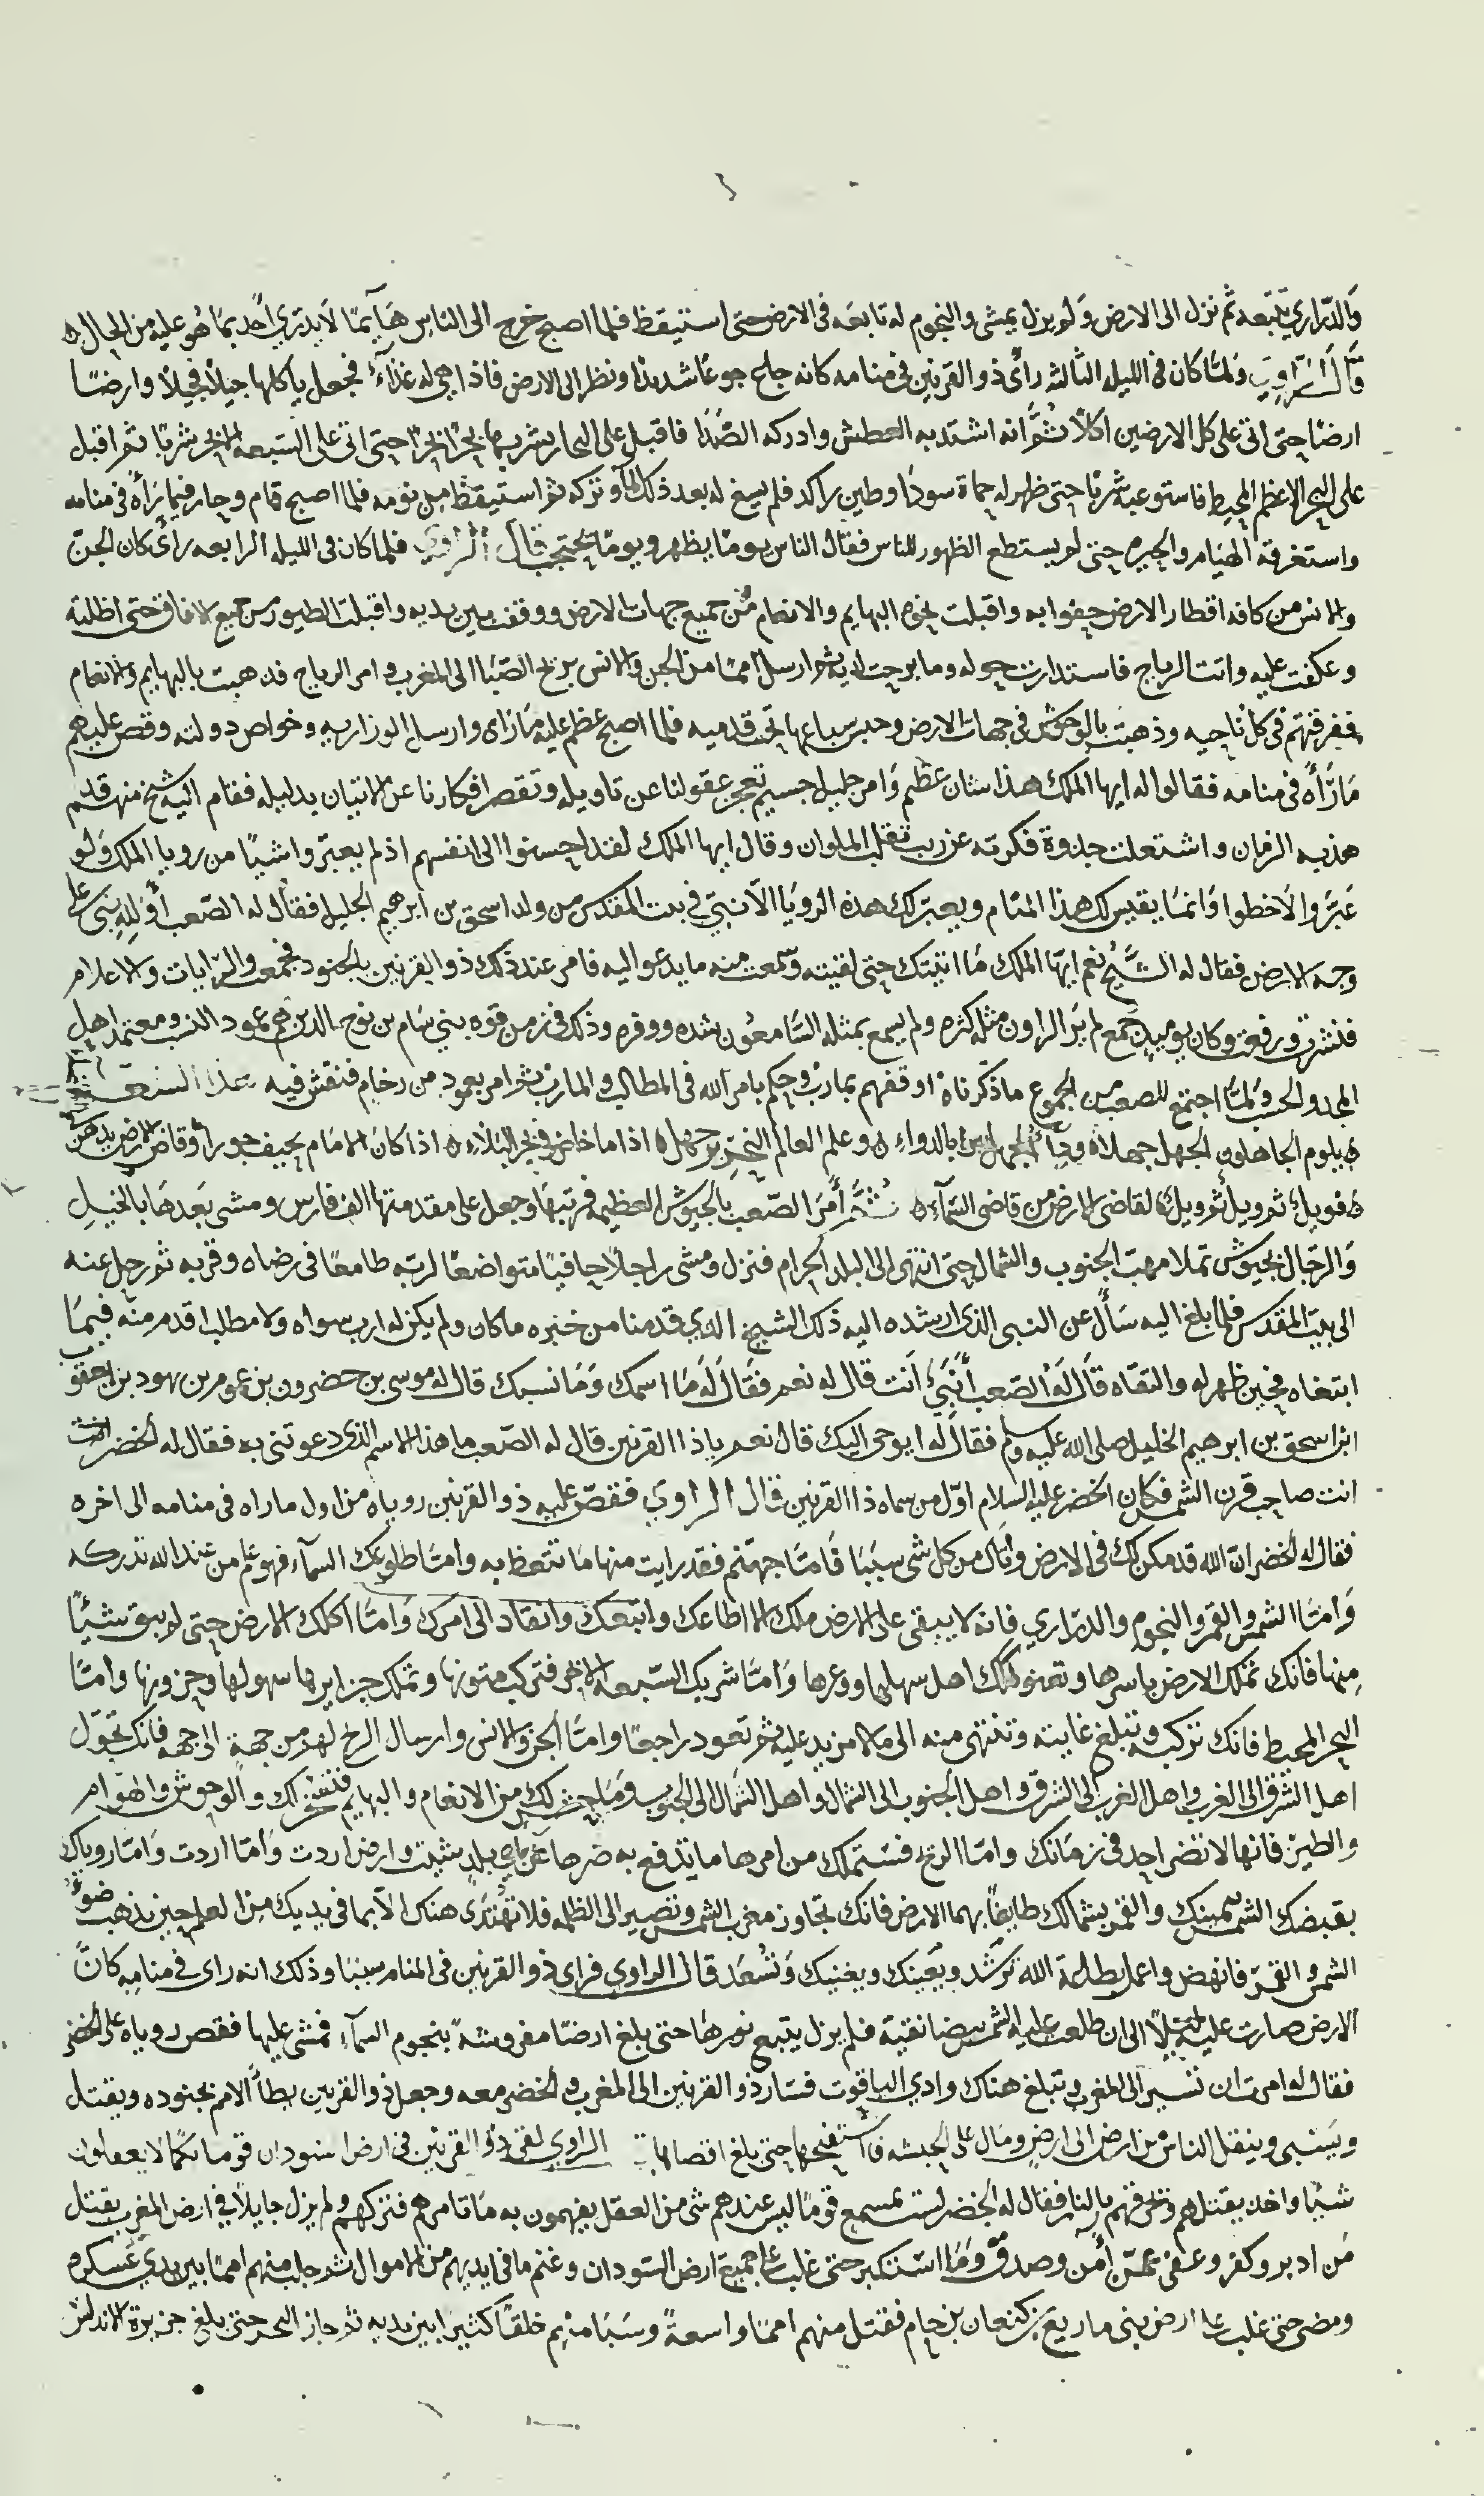 والدراري تتبعه ثم نزل الى الارض ولم يزل يمشي والنجوم له تابعه في الارض حتى استيقظ فلما اصبح خرج الى الناس هايما لا يدري احد بما هو عليه من الحال
قال الراوي ولما كان في الليله الثالثه رأى ذو القرنين في منامه كانه جاع جوعا شديدا ونظر الى الارض فاذا هي له غذآء فجعل ياكلها جبلا فجبلا وارضا
ارضا حتى اتى على كل الارضين اكلا ثم انه اشتد به العطش وادركه الصدا فاقبل على البحار يشربها بحرا بحرا حتى اتى على السبعه الابحر شربا ثم اقبل
على البحر الاعظم المحيط فاستوعبه شربا حتى ظهر له حماة سودا وطين راكد فلم يسغ له بعد ذلك المآ وتركه ثم استيقظ من نومه فلما اصبح قام وحار فيما رأه في منامه
واستغرقه الهيام والحيره حتى لم يستطع الظهور للناس فقال الناس يوما يظهر ويوما يحتجب قال الراوي فلما كان في الليله الرابعه رأى كان الجن
والانس من كافه اقطار الارض حفوا به واقبلت نحوه البهايم والانعام من جميع جهات الارض ووقفت بين يديه واقبلت الطيور من جميع الافاق حتى اظلته
وعكفت عليه واتت الرياح فاستدارت حوله وما برحت لديه ثم ارسل امما من الجن والانس بريح الصبا الى المغرب وامر الرياح فذهبت بالبهايم والانعام
ففرقتهم في كل ناحيه وذهبت بالوحوش في جهات الارض وحبس سباعها تحت قدميه فلما اصبح عظم عليه ما رآى وارسل الى وزارايه وخواص دولته وقص عليهم
ما رأه في منامه فقالوا له ايها الملك هذا شان عظيم وامر جليل جسيم تعجز عقولنا عن تاويله وتقصر افكارنا عن الاتيان بدليله فقام اليه شيخ منهم قد
هذبه الزمان واشتعلت جذوة فكرته عن ريب تقلب الملوان وقال ايها الملك لقد احسنوا الى انفسهم اذ لم يعبروا شيئا من رويا الملك ولو
عبروا لاخطوا وانما يقيس لك هذا المنام ويعبر لك هذه الرويا الا نبي في بيت المقدس من ولد اسحق بن ابرهيم الخليل فقال له الصعب أو لله نبي على
وجه الارض فقال له الشيخ نعم ايها الملك ما اتيتك حتى لقيته وسمعت منه ما يدعو اليه فامر عند ذلك ذو القرنين بالجنود فجمعت والرايات والاعلام
فنشرت ورفعت وكان يوميذ جمع لم ير الراون مثله كثره ولم يسمع بمثله السامعون شده ووفره وذلك في زمن قوه بني سام بن نوح الذين هم عمود النسب ومعتمد اهل
المجد والحسب ولما اجتمع للصعب من الجموع ما ذكرناه اوقفهم بمارب وحكم بامر الله في المطالب والمارب ثم امر بعمود من رخام فنقش فيه هذا الشعر
يلوم الجاهلون الجهل جهلا ودآ الجهل ليس بالدواء وعلم العالم النحرير جهل اذا ما خاض في بحر البلاء اذا كان الامام يحيف جورا وقاض الارض يدهن
فويل ثم ويل ثم ويل لقاضي الارض من قاضي السمآء ثم أمر الصعب بالجيوش العظيمه فرتبها وجعل على مقدمتها الف فارس ومشى بعدها بالخيل
والرجال بجيوش تملا مهب الجنوب والشمال حتى انتهى الى البلد الحرام فنزل ومشى راجلا حافيا متواضعا لربه طامعا في رضاه وقربه ثم رحل عنه
الى بيت المقدس فلما بلغ اليه سأل عن النبي الذي ارشده اليه ذلك الشيخ الذي قدمنا من خبره ما كان ولم يكن له ارب سواه ولا مطلب اقدم منه فيما
ابتغاه فحين ظهر له والتقاه قال له الصعب أنبي انت قال له نعم فقال له ما اسمك وما نسبك قال له موسى بن حضرون بن عومر بن يهود بن يعقوب
ابن اسحق بن ابرهيم الخليل صلى الله عليه وسلم فقال له ايوحى اليك قال نعم ياذا القرنين قال له الصعب ما هذا الاسم الذي دعوتني به فقال له الخضر
انت صاحب قرن الشمس فكان الخضر عليه السلام اول من سماه ذا القرنين قال الراوي فقص عليه ذو القرنين روياه من اول ما راه في منامه الى اخره
فقال له الخضر ان الله قد مكن لك في الارض واتاك من كل شي سببا فاما جهنم فقد رايت منها ما تتعظ به واما طلوعك السمآء فهو علم من عند الله تدركه
واما الشمس والقمر والنجوم والدراري فانه لا يبقى على الارض ملك الا اطاعك واتبعك وانقاد الى امرك واما اكلك الارض حتى لم يبق شيئا
منها فانك تملك الارض باسرها وتعنو لملك اهل سهلها ووعرها واما شربك السبعه الابحر فتركب متونها وتملك جزايرها سهولها وحزونها واما
البحر المحيط فانك تركبه وتبلغ غايته وتنتهي منه الى ما لا مزيد عليه ثم تعود راجعا واما الجن والانس وارسال الريح لهم من جهة الى جهه فانك تحول
اهل الشرق الى الغرب واهل الغرب الى الشرق واهل الجنوب الى الشمال واهل الشمال الى الجنوب وما حشر لك من الانعام والبهايم فتسخر لك والوحوش والهوام
والطير فانها لا تضر احد في زمانك واما الريح فستملك من امرها ما يدفع به ضرها عن اي بلد شيت وارض اردت واما اردت واما روياك
بقبضك الشمس بيمينك والقمر بشمالك طايفا بهما الارض فانك تجاوز مغرب الشمس وتصير الى الظلمه فلا تهتدى هناك الا بما في يديك من العلم حين يذهب ضوء
الشمس والقمر فانهض واعمل بطاعة الله ترشد ويعينك ويغنيك وتسعد قال الراوي فراى ذو القرنين في المنام سببا وذلك انه راى في منامه كان
الارض صارت عليه ليلا الى ان طلعت عليه الشمس بيضا نقية فلم يزل يتبع نورها حتى بلغ ارضا مفروشة بنجوم السمآء فمشى عليها فقص روياه على الخضر
فقال له امرت ان تسير الى المغرب وتبلغ هناك وادي الياقوت فسار ذو القرنين الى المغرب والخضر معه وجعل ذو القرنين يطأ الامم بجنوده ويقتل
ويسبي وينقل الناس من ارض الى ارض ومال على الحبشه فاستفتحها حتى بلغ اقصاها الراوي لقى ذو القرنين في ارض السودان قوما بكما لا يعقلون
شيئا واخذ يقتلهم ويحرقهم بالنار فقال له الخضر لست بمسمع قوما ليس عندهم شي من العقل يفهمون به ما تامرهم فتركهم ولم يزل جايلا في ارض المغرب يقتل
من ادبر وكفر وعفى عمن أمن وصدق وما استكبر حتى غلب على جميع ارض السودان وغنم ما في ايديهم من الاموال ثم جلب منهم امما بين يدي عسكره
ومضى حتى غلب على ارض بني ماريع بن كنعان بن حام فقتل منهم امما واسعة وسبا منهم خلقا كثيرا بين يديه ثم جاز البحر حتى بلغ جزيرة الاندلس